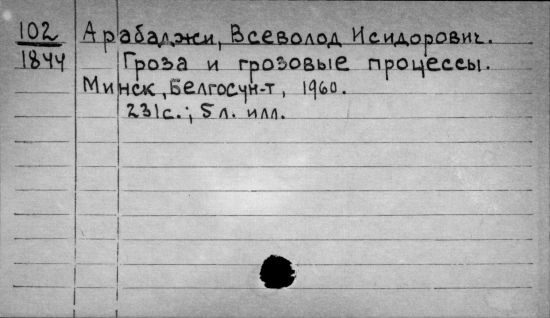 102 Арабаджи, Всеволод Исидорович.
1844 Гроза и грозовые процессы.
Минск, Белгосун-т, 1960.
231с.; 5 л. илл.